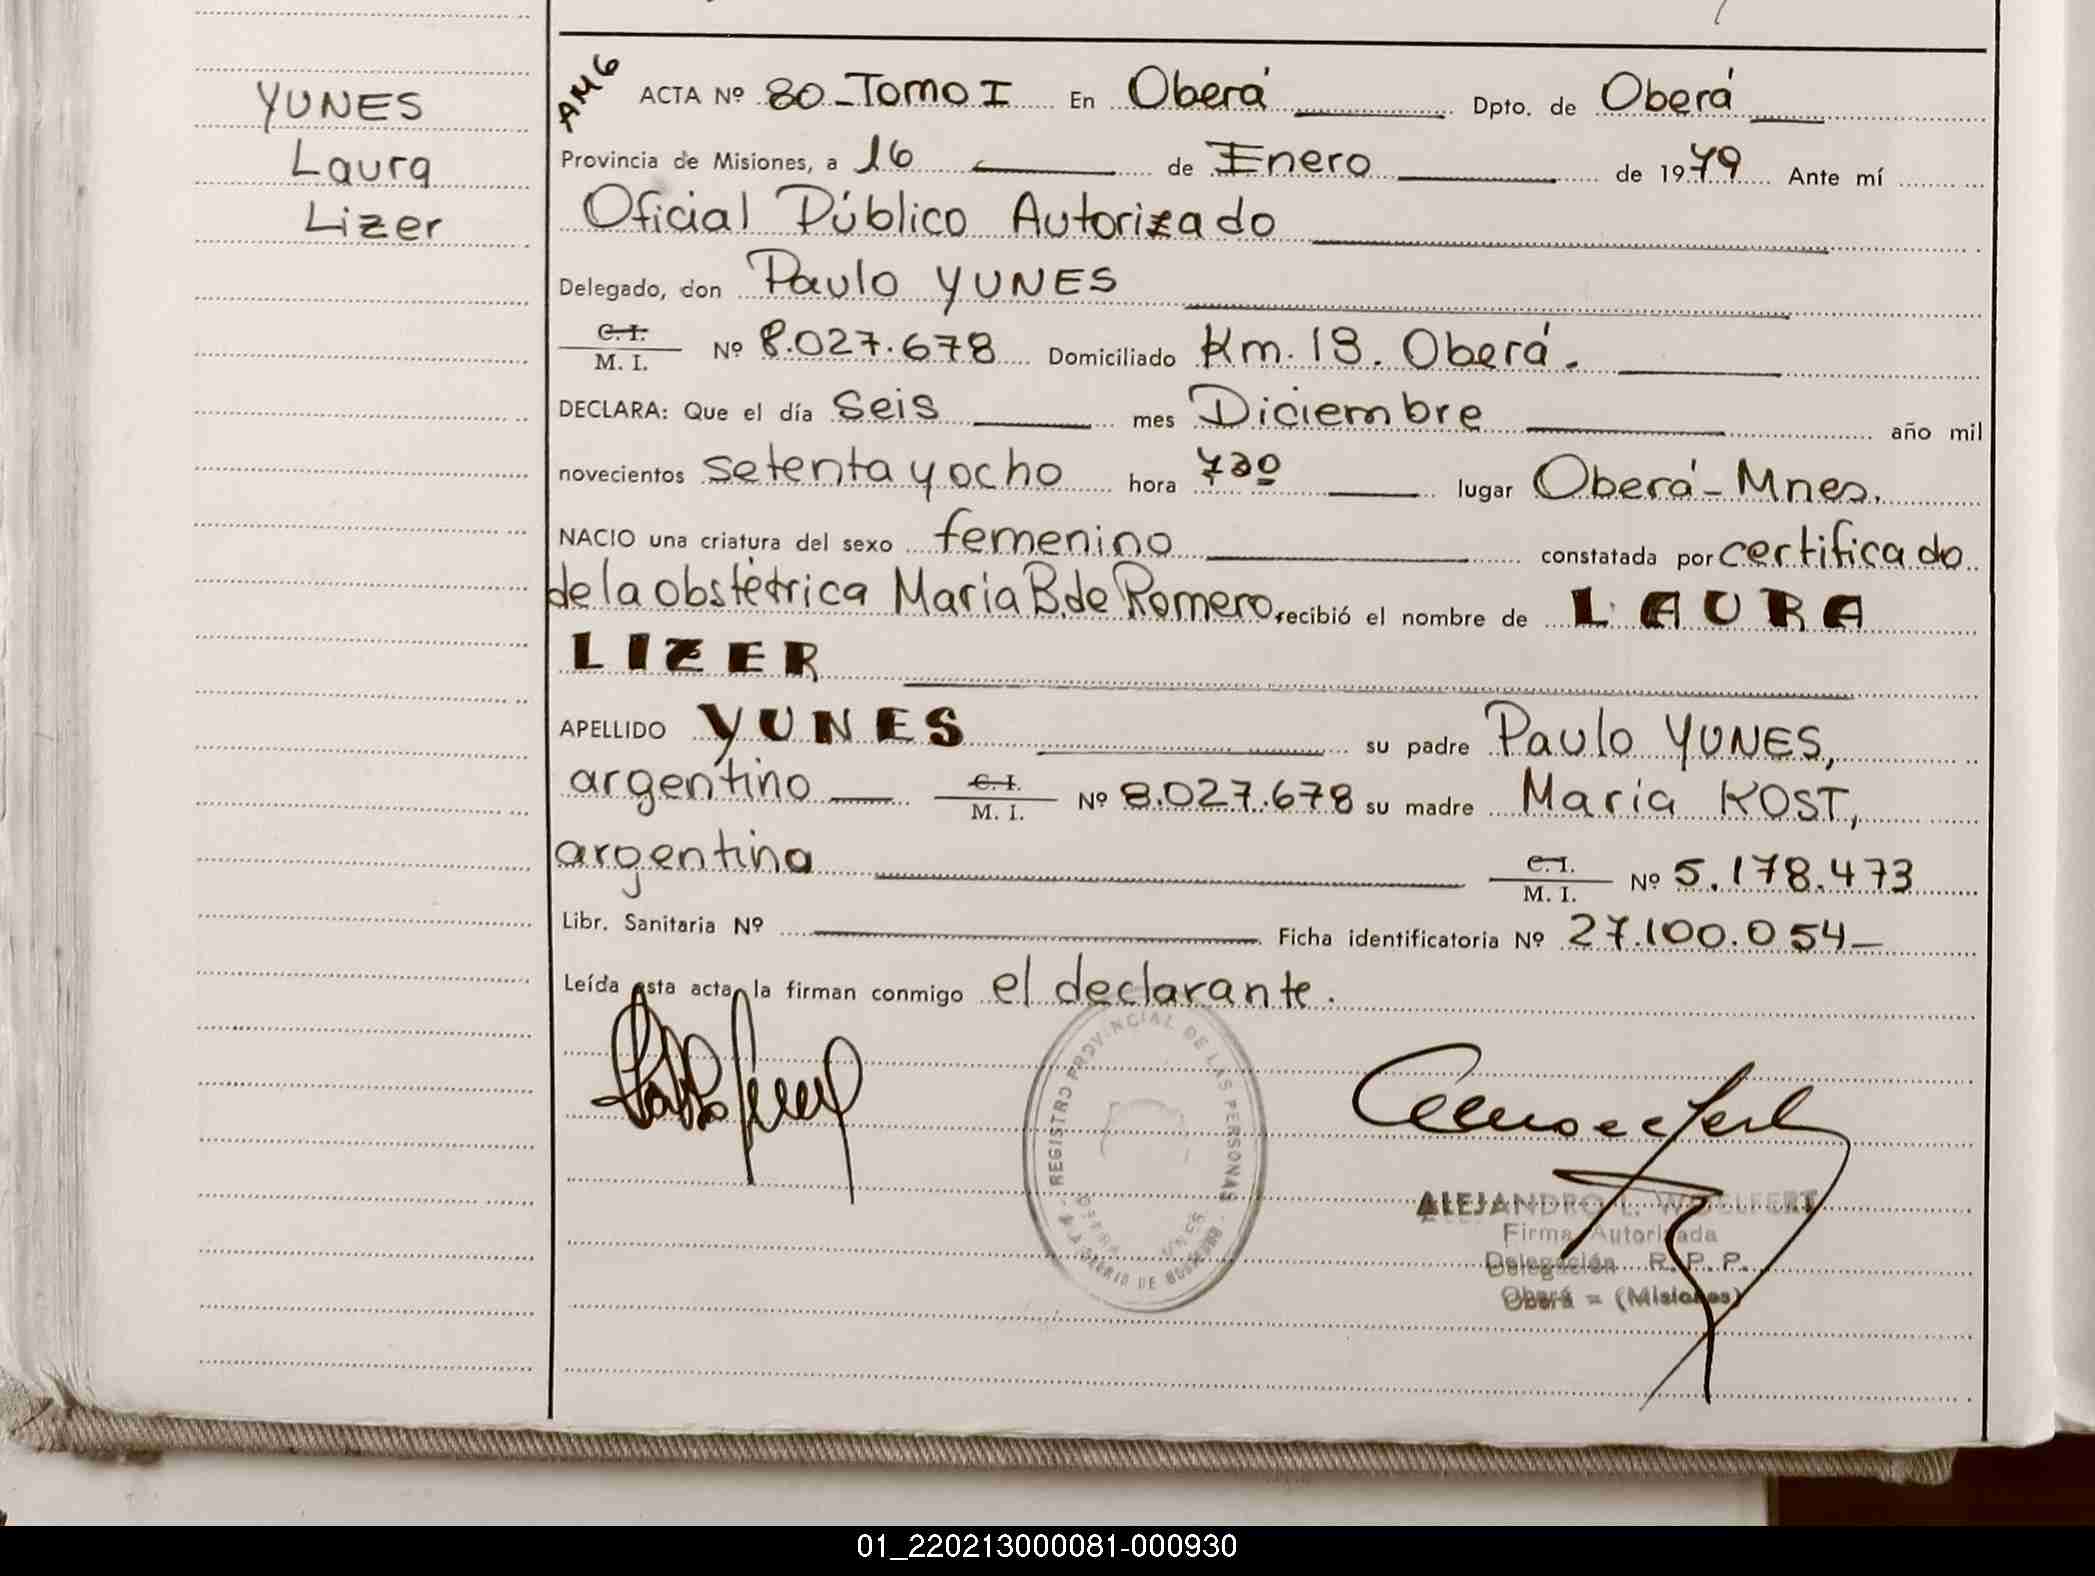 YUNES
Laura
Lizer
AMG
ACTA Nº 80-Tomo I En Oberá Dpto. de Oberá
Provincia de Misiones, a 16 de Enero de 1979 Ante mí
Oficial Público Autorizado
Delegado, don Paulo YUNES
C.I. / M. I. Nº 8.027.678 Domiciliado Km. 18. Oberá.
DECLARA: Que el día seis mes Diciembre año mil
novecientos setenta y ocho hora 7 30 lugar Oberá-Mnes.
NACIO una criatura del sexo femenino constatada por certificado
de la obstétrica Maria B. de Romero recibió el nombre de LAURA
LIZER
APELLIDO YUNES su padre Paulo YUNES,
argentino C.I. / M. I. Nº 8.027.678 su madre Maria KOST,
argentina C.I. / M. I. Nº 5.178.473
Libr. Sanitaria Nº Ficha identificatoria Nº 27.100.054-
Leída esta acta, la firman conmigo el declarante.
REGISTRO PROVINCIAL DE LAS PERSONAS
ALEJANDRO L. WOELFERT
Firma Autorizada
Delegación R. P. P.
Oberá = (Misiones)
01_220213000081-000930